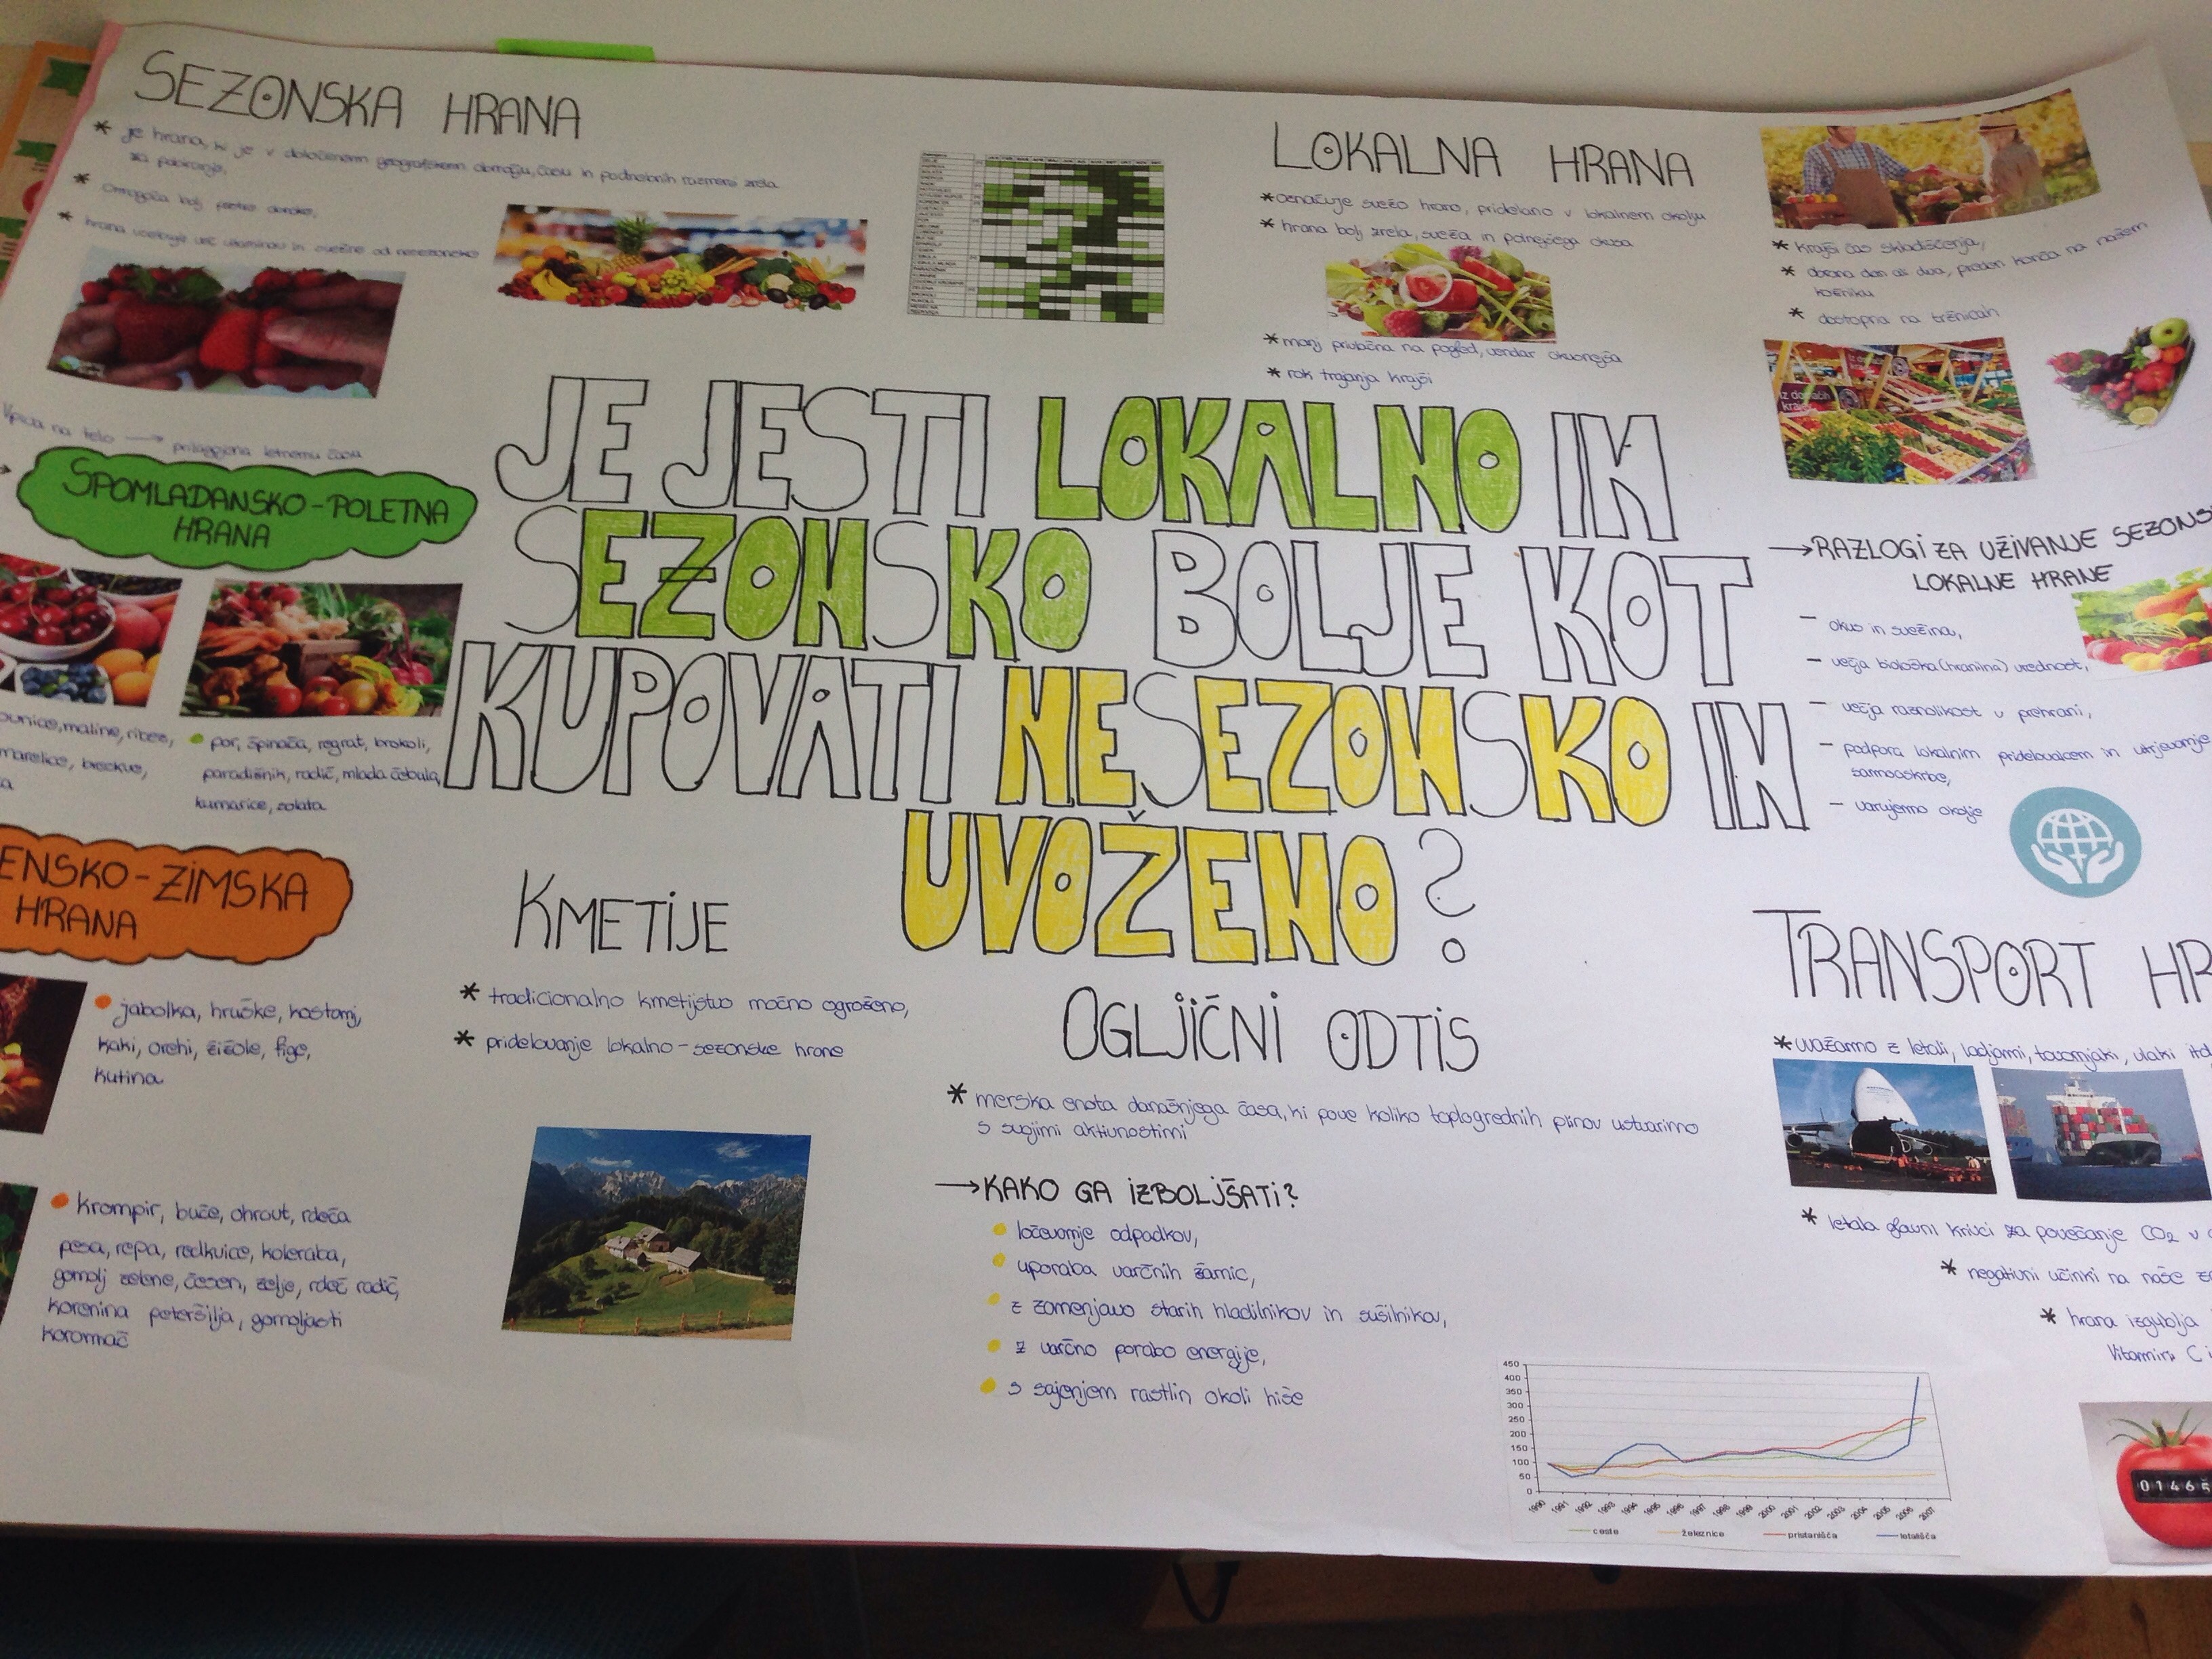 SEZONSKA HRANA
* je hrana, ki je v določenem geografskem območju, času in podnebnih razmerah zrela
za pobiranje,
* Omogoča bolj pestro
* hrana vsebuje več vitaminov in od nesezonske
Vpliva na telo → prilagojena letnemu času
SPOMLADANSKO-POLETNA
HRANA
maline, ribez,
marelice, breskve,
por, špinača, regrat, brokoli,
paradižnik, radič, mlada čebula,
kumarice, solata
ENSKO-ZIMSKA
HRANA
jabolka, hruške, kostanj,
kaki, orehi, žižole, fige,
kutina
krompir, buče, ohrovt, rdeča
pesa, repa, redkvice, koleraba,
gomolj zelene, česen, zelje, rdeč radič,
korenina peteršilja, gomoljasti
koromač
JE JESTI LOKALNO IN
SEZONSKO BOLJE KOT
KUPOVATI NESEZONSKO IN
UVOŽENO?
KMETIJE
* tradicionalno kmetijstvo močno ogroženo,
* pridelovanje lokalno-sezonske hrane
OGLJIČNI ODTIS
* merska enota današnjega časa, ki pove koliko toplogrednih plinov ustvarimo
s svojimi aktivnostmi
→ KAKO GA IZBOLJŠATI?
ločevanje odpadkov,
uporaba varčnih žarnic,
z zamenjavo starih hladilnikov in sušilnikov,
z varčno porabo energije,
s sajenjem rastlin okoli hiše
LOKALNA HRANA
* označuje svežo hrano, pridelano v lokalnem okolju
* hrana bolj zrela, sveža in polnejšega okusa
* manj privlačna na pogled, vendar okusnejša
* rok trajanja krajši
* krajši čas skladiščenja,
* obrana dan ali dva, preden konča na našem
krožniku
* dostopna na tržnicah
iz domačih
krajev
→ RAZLOGI ZA UŽIVANJE SEZONS
LOKALNE HRANE
- okus in svežina,
- večja biološka (hranilna) vrednost,
- večja raznolikost v prehrani,
- podpora lokalnim pridelovalcem in utrjevanje
samooskrbe,
- varujemo okolje
TRANSPORT HR
* uvažamo z letali, ladjami, tovornjaki, vlaki itd
* letala glavni krivci za povečanje CO2 v
* negativni učinki na naše
* hrana izgublja
Vitamin C i
01465
450
400
350
300
250
200
150
100
50
0
1990 1991 1992 1993 1994 1995 1996 1997 1998 1999 2000 2001 2002 2003 2004 2005 2006 2007
ceste železnice pristanišča letališča